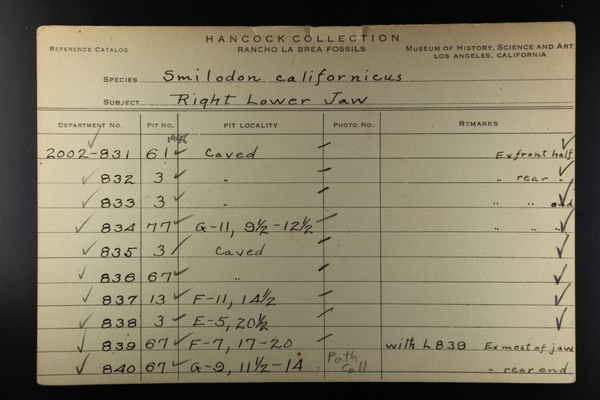 HANCOCK COLLECTION
REFERENCE CATALOG RANCHO LA BREA FOSSILS MUSEUM OF HISTORY, SCIENCE AND ART
LOS ANGELES, CALIFORNIA
SPECIES Smilodon californicus
SUBJECT Right Lower Jaw
DEPARTMENT NO. PIT NO. PIT LOCALITY PHOTO NO. REMARKS
2002-831 61 Caved Ex front half
832 3 " " rear "
833 3 " " " end
834 77 G-11, 9½-12½ " " "
835 3 Caved
836 67 "
837 13 F-11, 14½
838 3 E-5, 20½
839 67 F-7, 17-20 with L839 Ex most of jaw
840 67 G-9, 11½-14 Path Coll " rear end